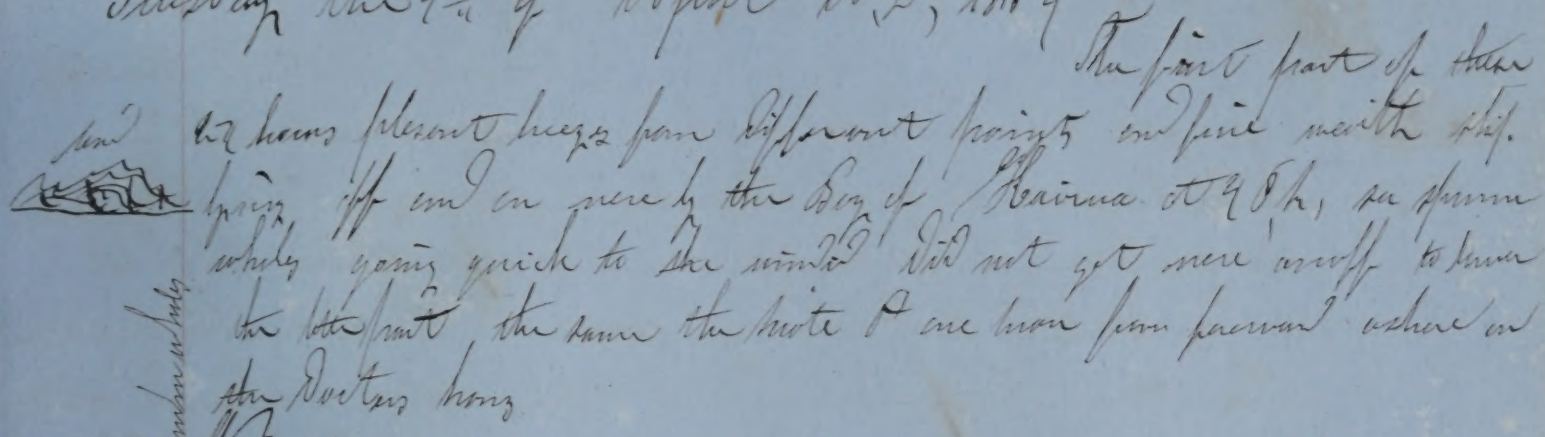 the 4th of
The first part of these
24 hours plesent breezes from Different points and fine ship
land
lying off and on nere by the Bay of at 4 sperm
whales going quick to the wind Did not get nere anoff to lower
the latter part the same the mate & one man from forward ashore on
the Doctors
sperm whales